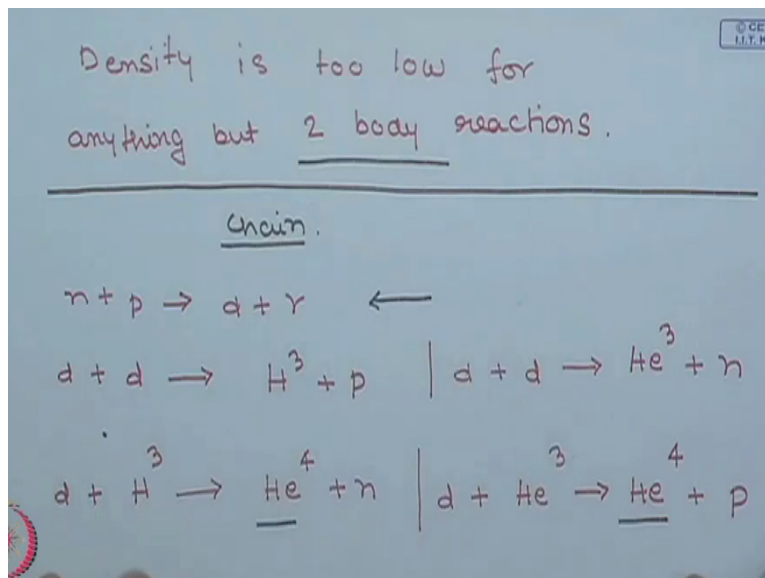 © CE
I.I.T. K
Density is too low for
anything but 2 body reactions.
Chain.
n + p → d + γ ←
d + d → H³ + p | d + d → He³ + n
d + H³ → He⁴ + n | d + He³ → He⁴ + p